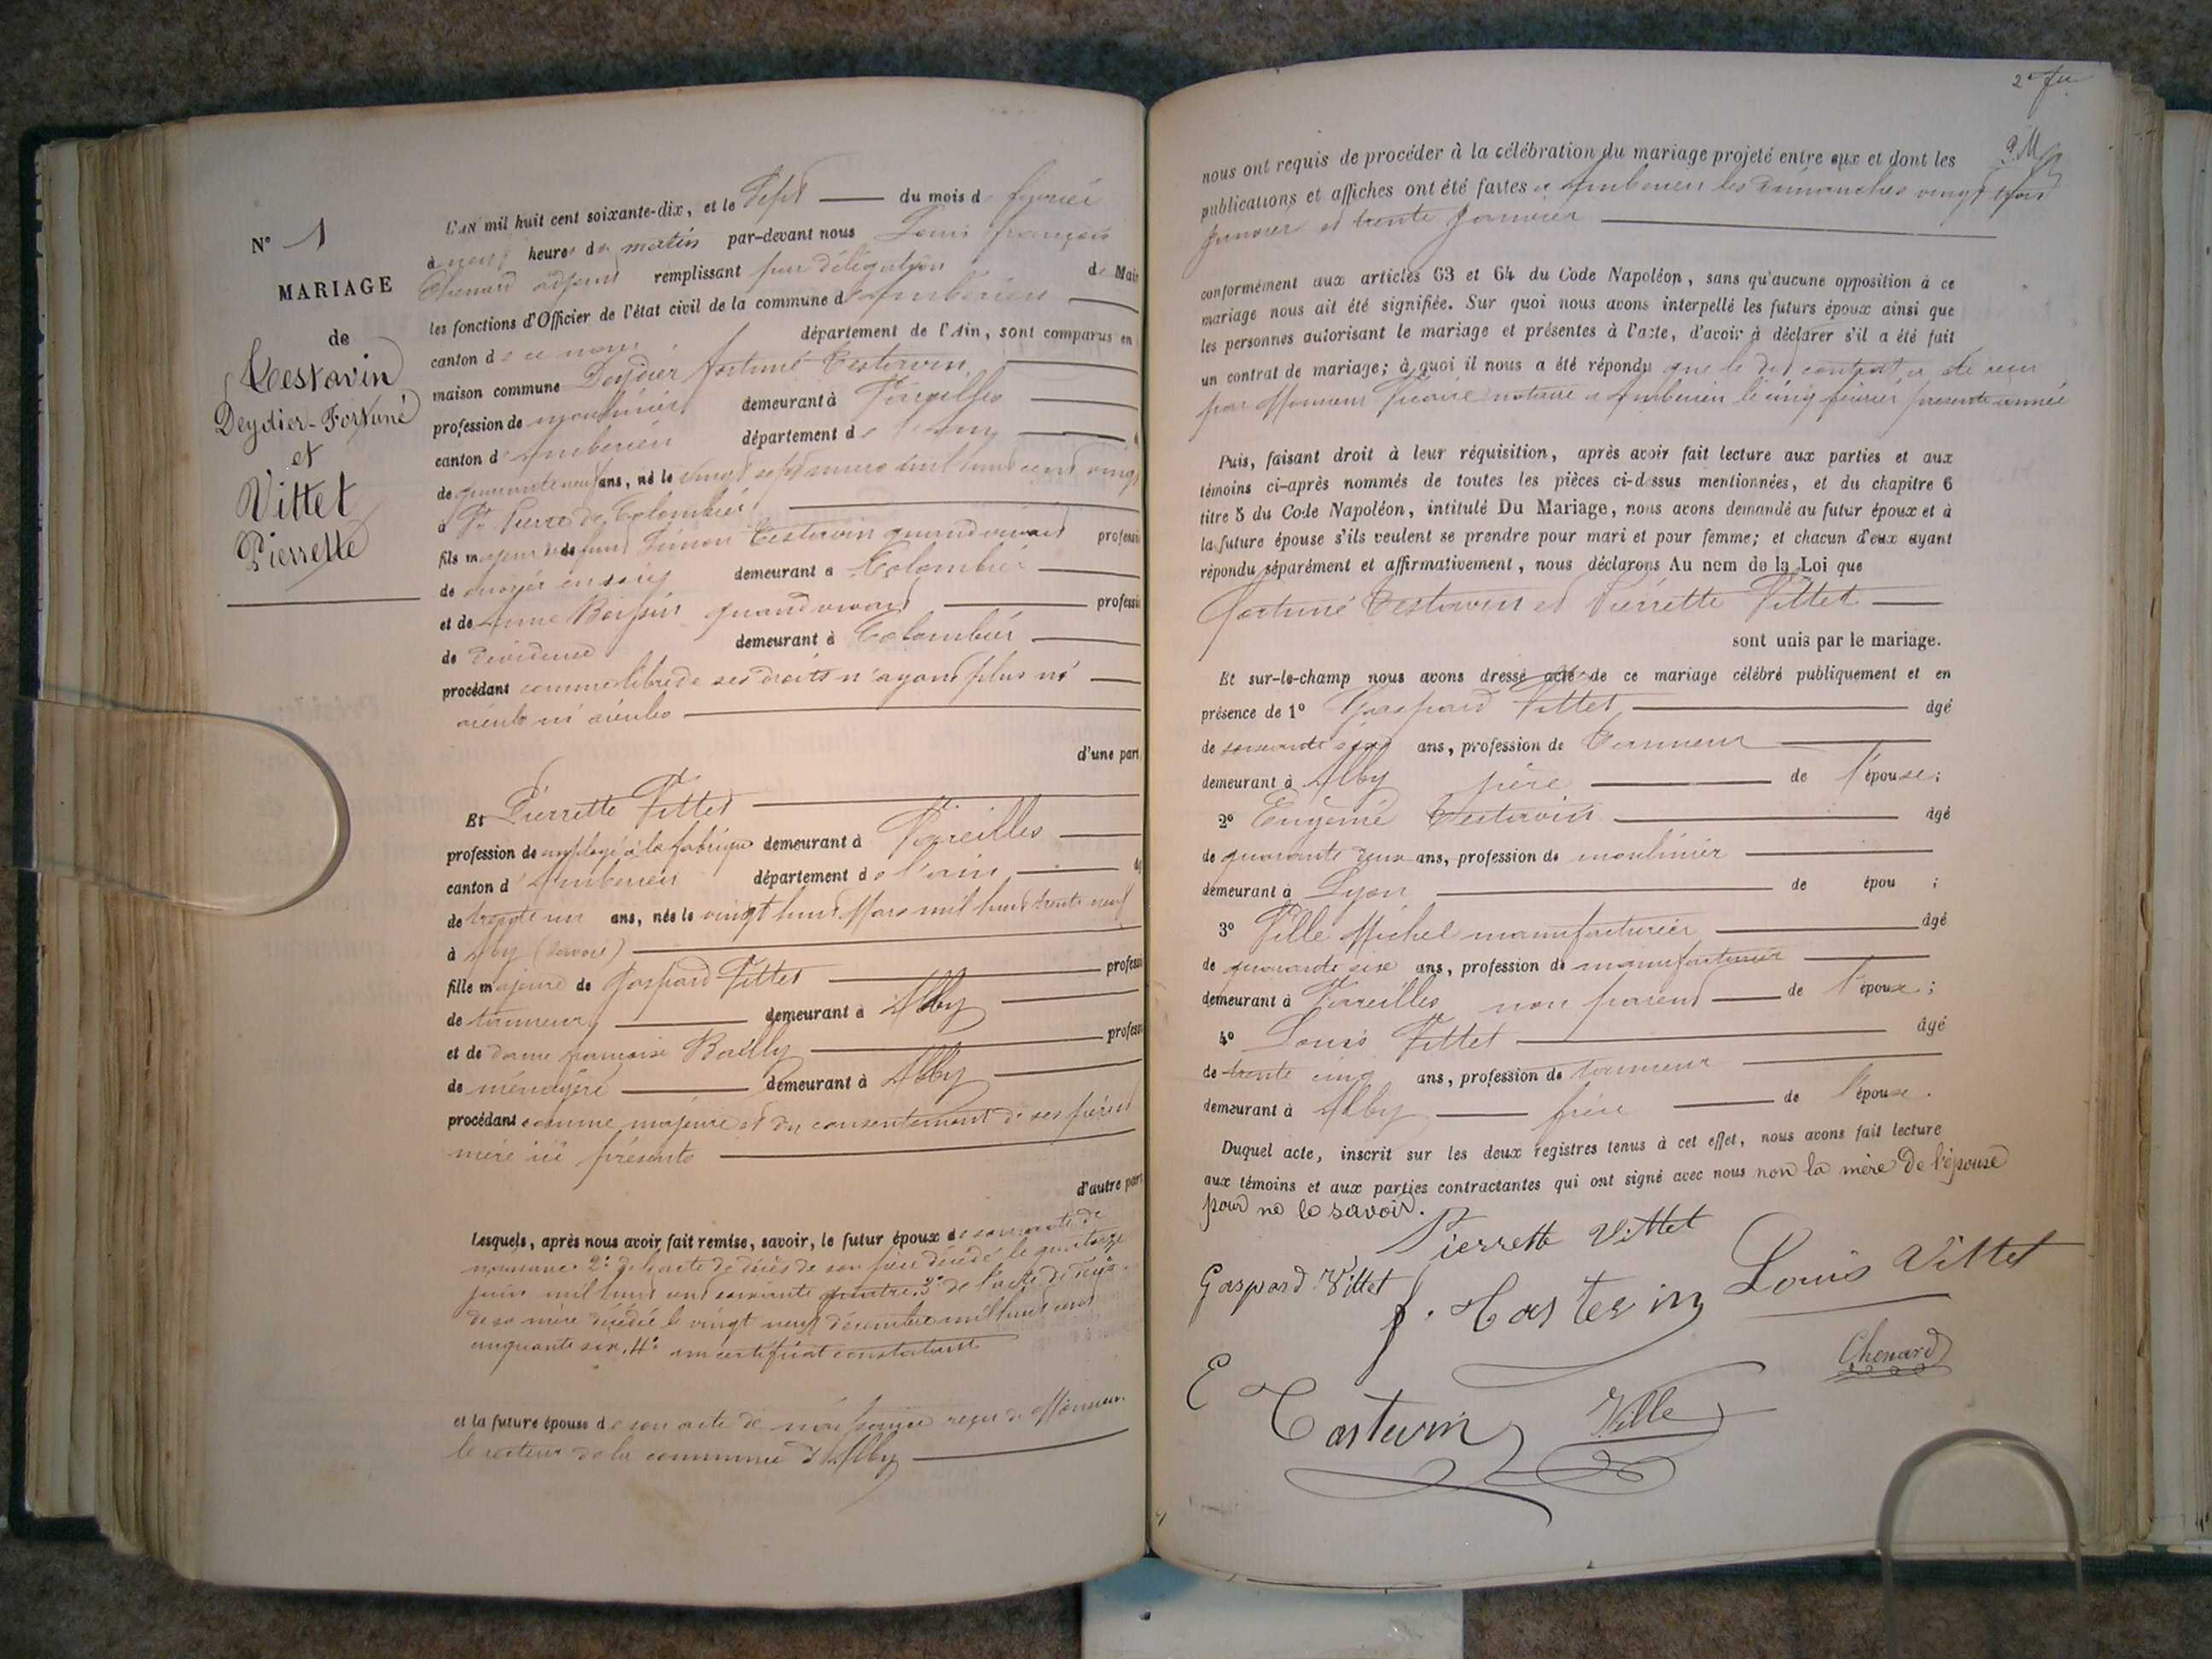 N° 1
MARIAGE
de
Testavin
Deydier-Fortuné
et
Vittet
Pierrette
L'AN mil huit cent soixante-dix, et le Sept du mois de fevrier
à neuf heures du matin par-devant nous Louis françois
Chenard adjoint remplissant par délégation de Maire
les fonctions d'Officier de l'état civil de la commune d'Amberieu
canton de ce nom département de l'Ain, sont comparus en
maison commune Deydier fortuné Testavin
profession de moulinier demeurant à Vareilles
canton d'Amberieu département de l'ain
de quarante neuf ans, né le vingt sept mars mil huit cent vingt
à St Pierre de Colombier
fils majeur de feu Simon Testavin quand vivait professi
de demeurant à Colombier
et de Anne quand vivait professi
de dévideuse demeurant à Colombier
procédant comme libre de ses droits n'ayant plus ni
aïeuls ni aïeules
d'une part
Et Pierrette Vittet
profession de employé à la fabrique demeurant à Vareilles
canton d'Amberieu département de l'ain
de trente un ans, née le vingt huit Mars mil huit trente neuf
à Alby (Savoie)
fille majeure de Gaspard Vittet professi
de tanneur demeurant à Alby
et de dame françoise Bailly professi
de ménagère demeurant à Alby
procédant comme majeure et du consentement de ses père et
mère ici présents
d'autre part
Lesquels, après nous avoir fait remise, savoir, le futur époux de son acte de
naissance 2° de l'acte de décès de son père décédé le quatorze
juin mil huit cent soixante quatre. 3° de l'acte de décès
de sa mère décédée le vingt neuf décembre mil huit cent
cinquante six. 4° un certificat constatant
et la future épouse de son acte de naissance reçu de Monsieur
le recteur de la commune d'Alby
2e fu
nous ont requis de procéder à la célébration du mariage projeté entre eux et dont les
publications et affiches ont été faites à Amberieu les dimanches vingt trois
janvier et trente janvier
conformément aux articles 63 et 64 du Code Napoléon, sans qu'aucune opposition à ce
mariage nous ait été signifiée. Sur quoi nous avons interpellé les futurs époux ainsi que
les personnes autorisant le mariage et présentes à l'acte, d'avoir à déclarer s'il a été fait
un contrat de mariage; à quoi il nous a été répondu que le dit contrat a été reçu
par Monsieur notaire à Amberieu le cinq février presente année
Puis, faisant droit à leur réquisition, après avoir fait lecture aux parties et aux
témoins ci-après nommés de toutes les pièces ci-dessus mentionnées, et du chapitre 6
titre 5 du Code Napoléon, intitulé Du Mariage, nous avons demandé au futur époux et à
la future épouse s'ils veulent se prendre pour mari et pour femme; et chacun d'eux ayant
répondu séparément et affirmativement, nous déclarons Au nom de la Loi que
Fortuné Testavin et Pierrette Vittet
sont unis par le mariage.
Et sur-le-champ nous avons dressé acte de ce mariage célébré publiquement et en
présence de 1° Gaspard Vittet âgé
de soixante six ans, profession de Tanneur
demeurant à Alby père de l'épouse;
2° Eugénie Testavin âgé
de quarante deux ans, profession de moulinier
demeurant à Lyon de épou ;
3° Ville Michel manufacturier âgé
de quarante six ans, profession de manufacturier
demeurant à Vareilles non parent de l'épouse;
4° Louis Vittet âgé
de trente cinq ans, profession de tanneur
demeurant à Alby frère de l'épouse.
Duquel acte, inscrit sur les deux registres tenus à cet effet, nous avons fait lecture
aux témoins et aux parties contractantes qui ont signé avec nous non la mère de l'épouse
pour ne le savoir.
Pierrette Vittet
Gaspard Vittet
f. Tastevin Louis Vittet
Chenard
E Tastevin Ville